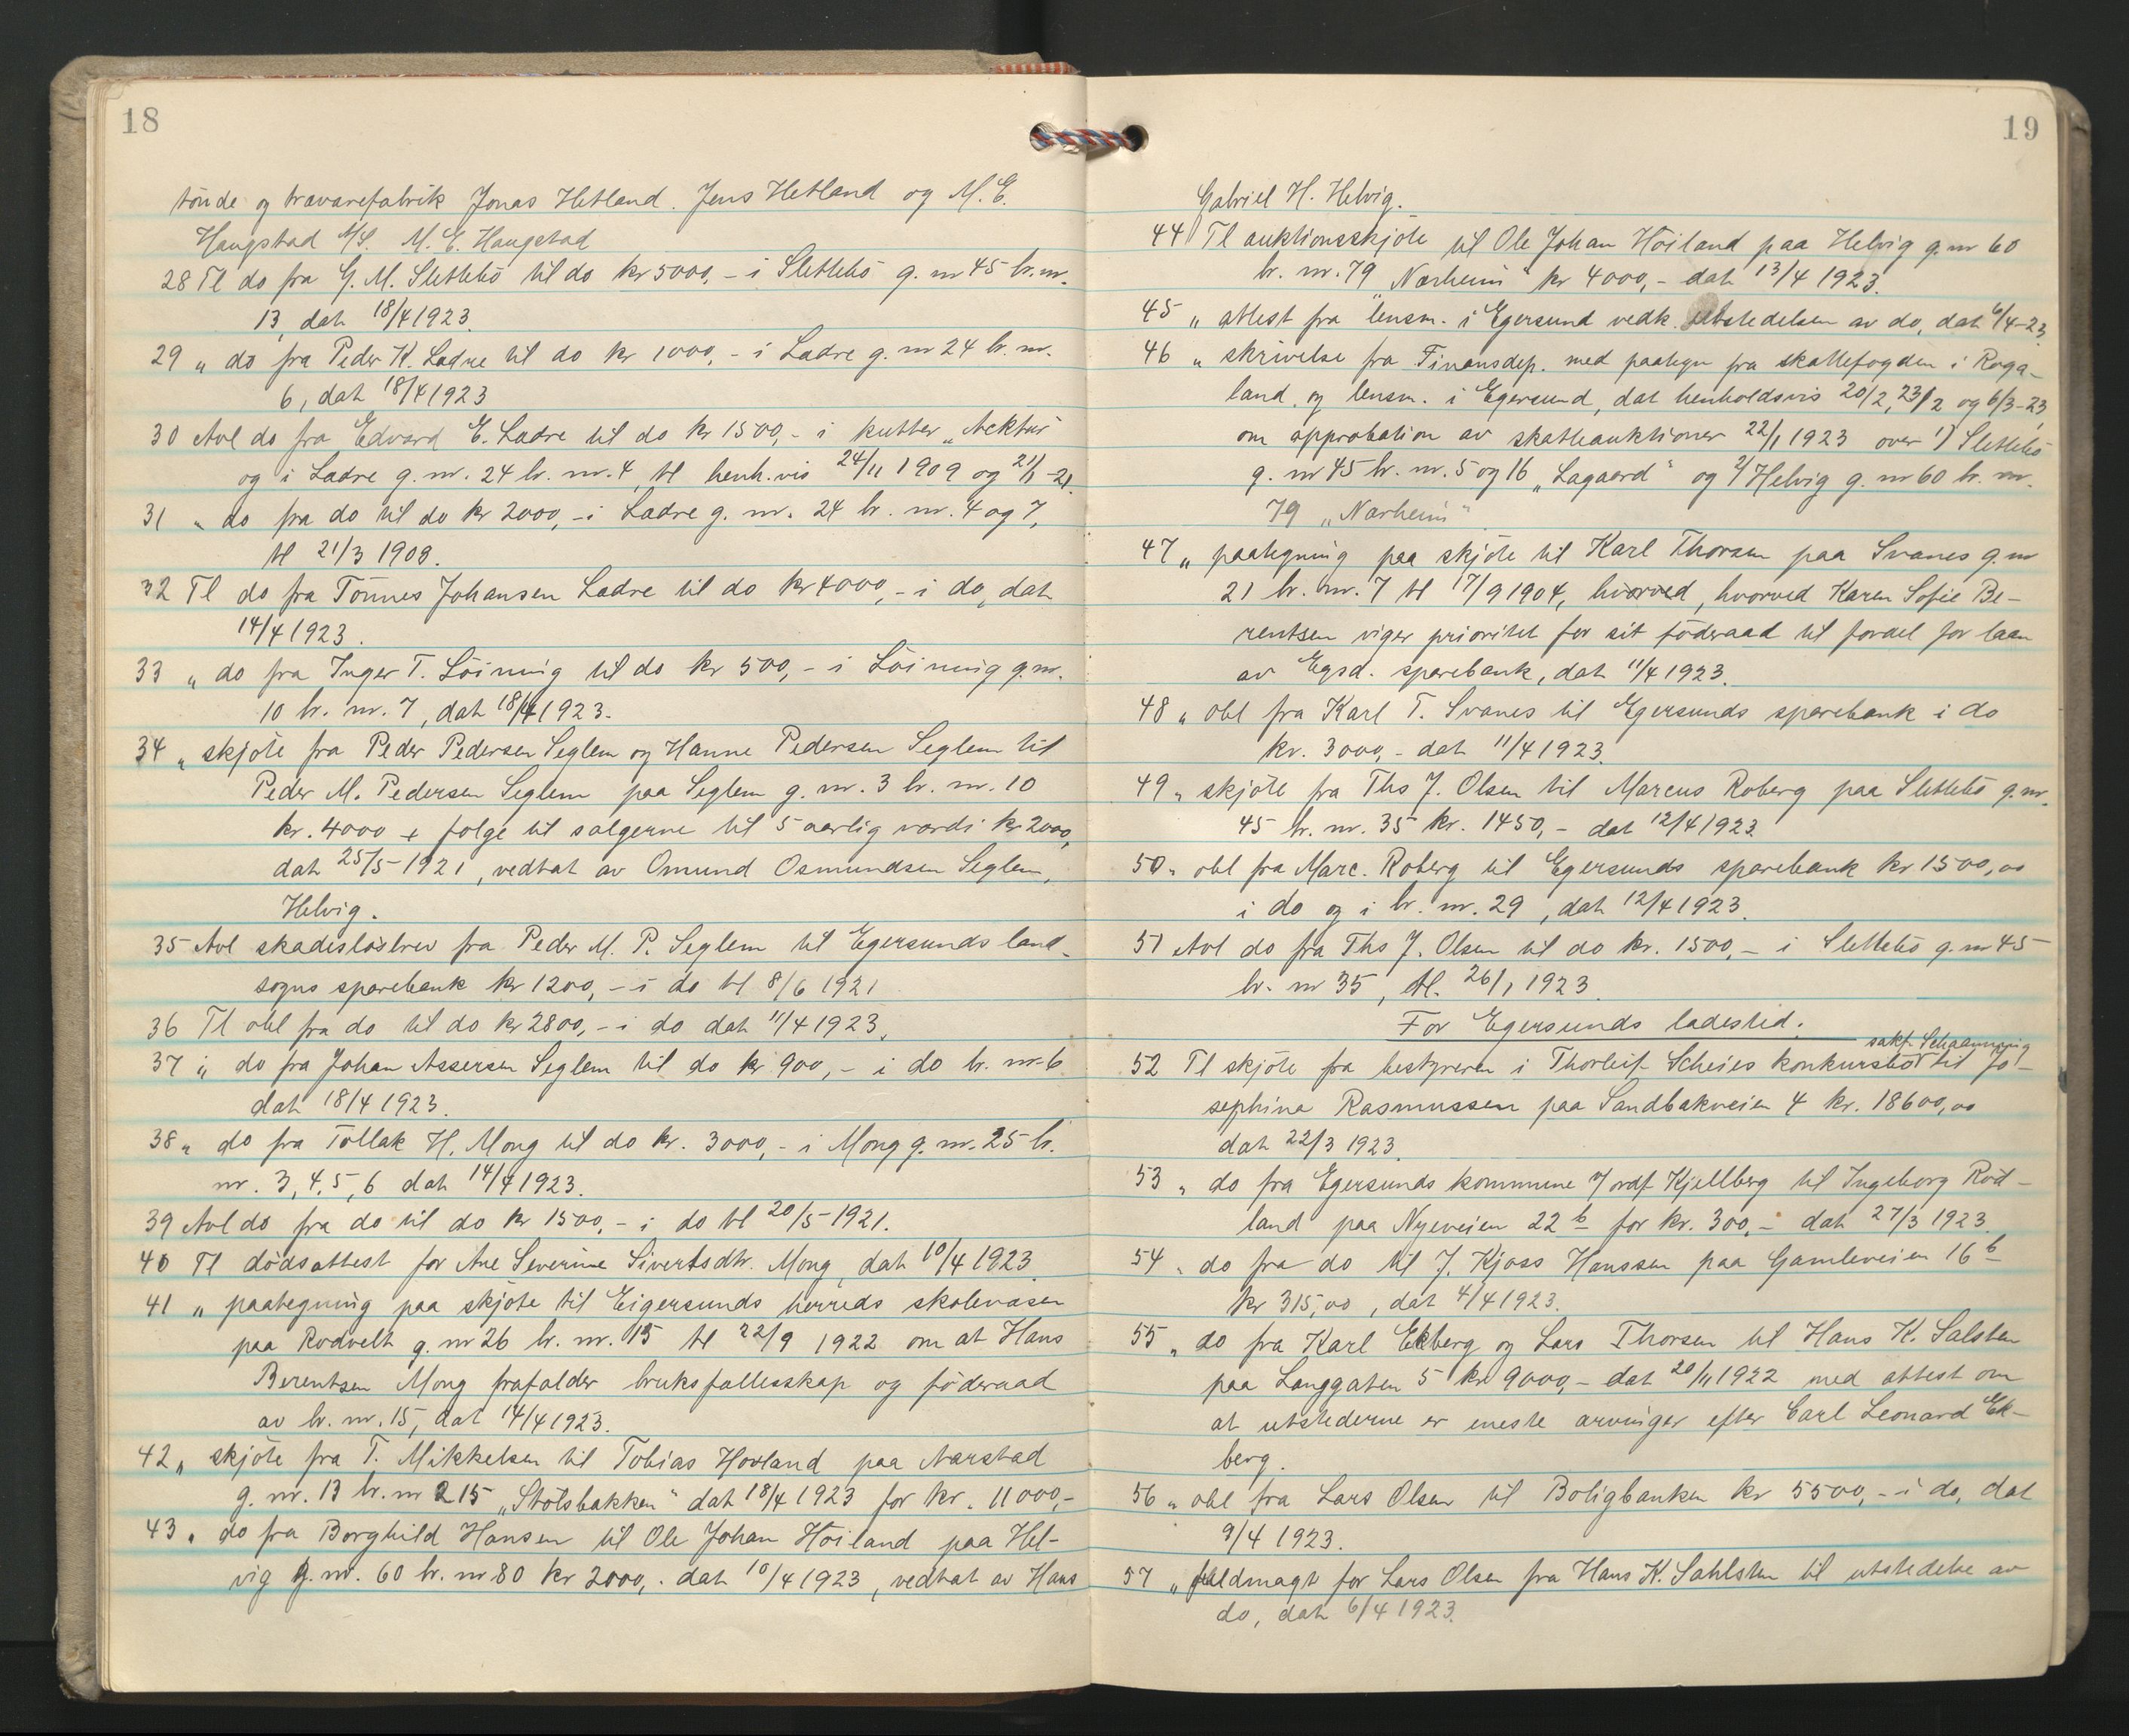 18
tönde og trævarefabrik Jonas Hetland. Jens Hetland og M. E.
Haugstad A/S. M. E. Haugstad
28 Tl do fra G. M. Slettebö til do kr 5000,- i Slettebö g. nr 45 br. nr.
13, dat 18/4 1923.
29 „ do fra Peder K. Ladre til do kr 1000,- i Ladre g. nr 24 br. nr.
6, dat 18/4 1923
30 Avl do fra Edvard E. Ladre til do kr 1500,- i kutter „Nektar"
og i Ladre g. nr. 24 br. nr. 4, tl henh.vis 24/11 1909 og 21/1-21.
31 „ do fra do til do kr 2000,- i Ladre g. nr. 24 br. nr. 4 og 7,
tl 21/3 1908.
32 Tl do fra Tönnes Johansen Ladre til do kr 4000,- i do, dat
14/4 1923.
33 „ do fra Inger T. Löining til do kr 500,- i Löining g. nr.
10 br. nr. 7, dat 18/4 1923.
34 „ skjöte fra Peder Pedersen Seglem og Hanne Pedersen Seglem til
Peder M. Pedersen Seglem paa Seglem g. nr. 3 br. nr. 10
kr. 4000 + følge til sælgerne til 5 aarlig værdi kr 2000,
dat 25/5-1921, vedtat av Omund Osmundsen Seglem,
Helvig.
35 Avl skadeslösbrev fra Peder M. P. Seglem til Egersunds land-
sogns sparebank kr 1200,- i do tl 8/6 1921
36 Tl obl fra do til do kr 2800,- i do dat 11/4 1923.
37 „ do fra Johan Assersen Seglem til do kr 900,- i do br. nr 6
dat 18/4 1923.
38 „ do fra Tollak H. Mong til do kr. 3000,- i Mong g. nr. 25 br.
nr. 3, 4, 5, 6 dat 14/4 1923.
39 Avl do fra do til do kr 1500,- i do tl 20/5-1921.
40 Tl dödsattest for Ane Severine Sivertsdtr. Mong, dat 10/4 1923.
41 „ paategning paa skjöte til Eigersunds herreds skolevæsen
paa Rodvelt g. nr 26 br. nr. 15 tl 22/9 1922 om at Hans
Berentsen Mong frafalder bruksfællesskap og föderaad
av br. nr. 15, dat 14/4 1923.
42 „ skjöte fra T. Mikkelsen til Tobias Hovland paa Aarstad
g. nr. 13 br. nr 215 „Stölsbakken" dat 18/4 1923 for kr. 11000,-
43 „ do fra Borghild Hansen til Ole Johan Höiland paa Hel-
vig g. nr. 60 br. nr 80 kr 2000,- dat 10/4 1923, vedtat av Hans
19
Gabriel H. Helvig.
44 Tl auktionsskjöte til Ole Johan Höiland paa Helvig g. nr 60
br. nr. 79 „Nærheim" kr 4000,- dat 13/4 1923.
45 „ attest fra lensm. i Egersund vedk. utstedelsen av do, dat 6/4-23.
46 „ skrivelse fra Finansdep. med paategn fra skattefogden i Roga-
land og lensm. i Egersund, dat henholdsvis 20/2, 23/2 og 6/3-23,
om approbation av skatteauktioner 22/1 1923 over 1) Slettebö
g. nr 45 br. nr. 5 og 16 „Lagaard" og 2) Helvig g. nr 60 br. nr.
79 „Nærheim"
47 „ paategning paa skjöte til Karl Thorsen paa Svanes g. nr
21 br. nr. 7 tl 17/9 1904, hvorved, hvorved Karen Sofie Be-
rentsen viger prioritet for sit föderaad til fordel for laan
av Egsd. sparebank, dat 11/4 1923.
48 „ obl fra Karl T. Svanes til Egersunds sparebank i do
kr. 3000,- dat 11/4 1923.
49 „ skjöte fra Ths J. Olsen til Marcus Roberg paa Slettebö g. nr.
45 br. nr. 35 kr. 1450,- dat 12/4 1923.
50 „ obl fra Marc. Roberg til Egersunds sparebank kr 1500,00
i do og i br. nr. 29, dat 12/4 1923.
51 Avl do fra Ths J. Olsen til do kr. 1500,- i Slettebö g. nr 45
br. nr 35, tl. 26/1 1923.
For Egersunds ladested.
sakf. Schanning
52 Tl skjöte fra bestyreren i Thorleif Scheies konkursbo til Jo-
sephina Rasmussen paa Sandbakveien 4 kr. 18600,00
dat 22/3 1923.
53 „ do fra Egersunds kommune v/ ordf. Kjellberg til Ingeborg Röd-
land paa Nyeveien 22 b for kr. 300,- dat 27/3 1923.
54 „ do fra do til J. Kjoss Hanssen paa Gamleveien 16 b
kr 315,00, dat 4/4 1923.
55 „ do fra Karl Ekberg og Lars Thorsen til Hans K. Salsten
paa Langgaten 5 kr 9000,- dat 20/11 1922 med attest om
at utstederne er eneste arvinger efter Carl Leonard Ek-
berg.
56 „ obl fra Lars Olsen til Boligbanken kr 5500,- i do, dat
9/4 1923.
57 „ fuldmagt for Lars Olsen fra Hans K. Sahlsten til utstedelse av
do, dat 6/4 1923.